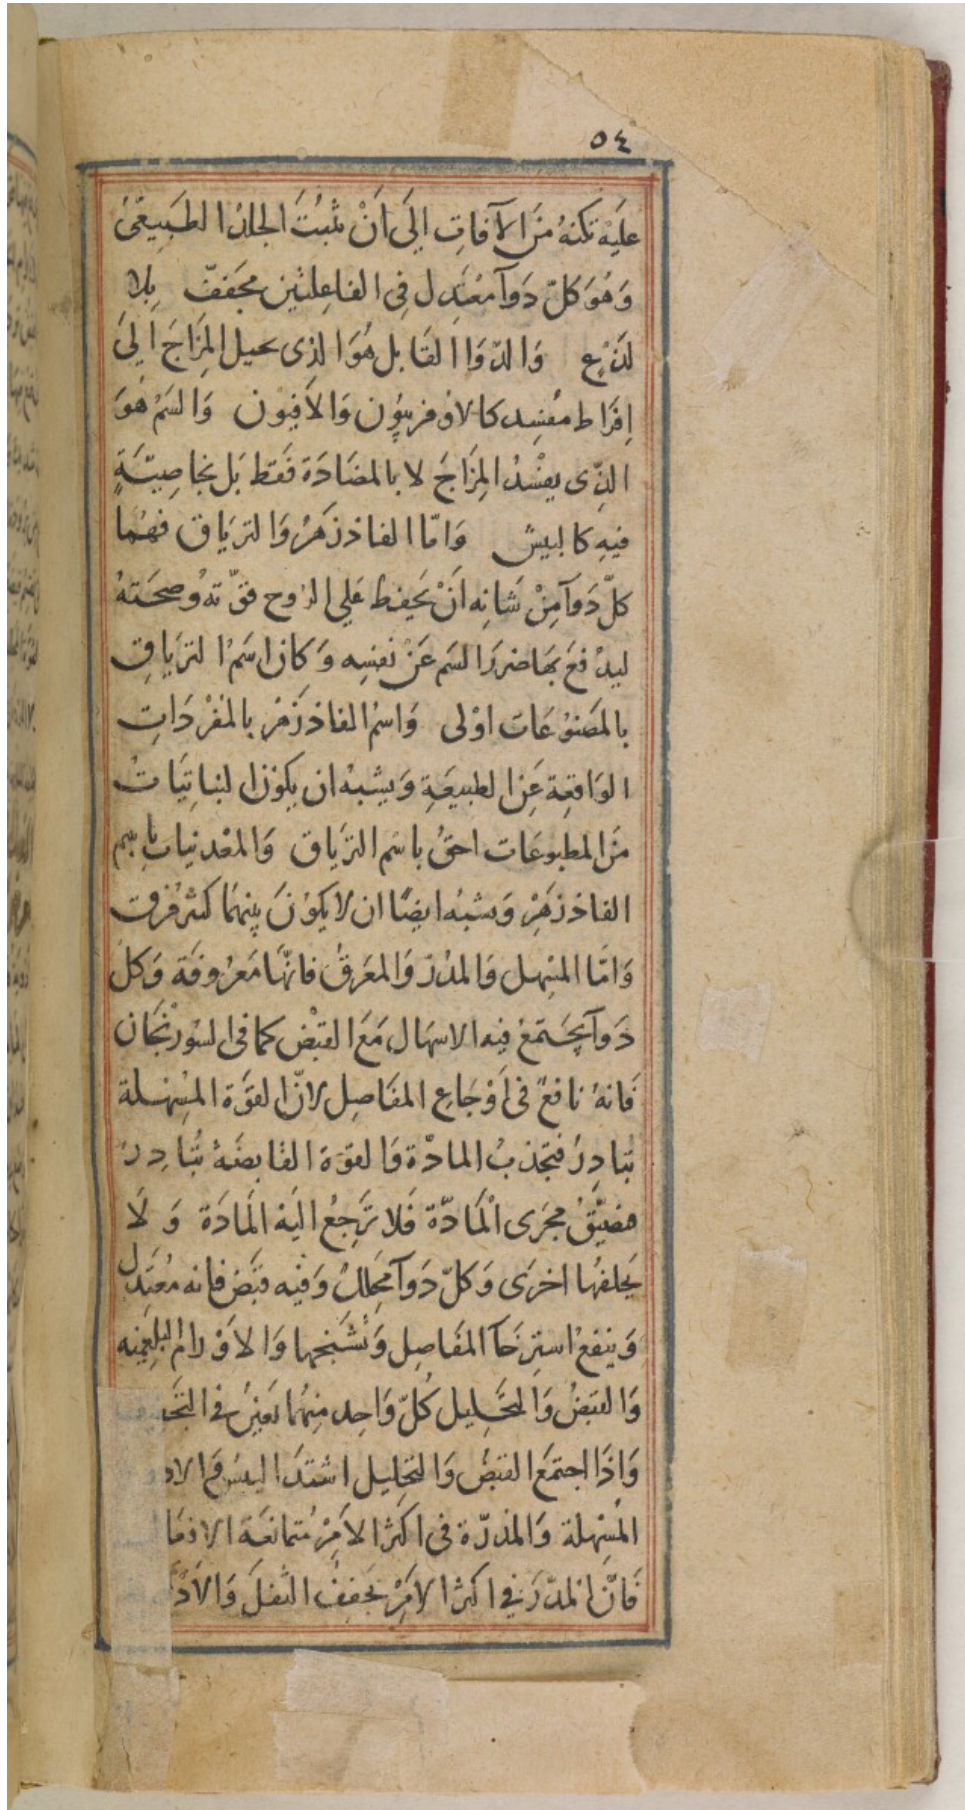 ٥٤
عليه تكنه من الآفات الى ان ينبت الجلد الطبيعى
وهو كل دوآ معتدل فى الفاعلتين مجفف بلا
لذع والدوا القاتل هو الذى يحيل المزاج الى
افراط مفسد كالاوفربيون والافيون والسم هو
الذى يفسد المزاج لا بالمضادة فقط بل بخاصية
فيه كالبيش واما الفاذزهر والترياق فهما
كل دوآ من شانه ان يحفظ على الروح قوته وصحته
ليدفع بها ضرر السم عن نفسه وكان اسم الترياق
بالمصنوعات اولى واسم الفاذزهر بالمفردات
الواقعة عن الطبيعة ويشبه ان يكون النباتيات
من المطبوعات احق باسم الترياق والمعدنيات باسم
الفاذزهر ويشبه ايضا ان لا يكون بينهما كثير فرق
واما المسهل والمدر والمعرق فانها معروفة وكل
دوآ يجتمع فيه الاسهال مع القبض كما فى السورنجان
فانه نافع فى اوجاع المفاصل لان القوة المسهلة
تبادر فتجذب المادة والقوة القابضة تبادر
فضيق مجرى المادة فلا ترجع اليه المادة ولا
يخلفها اخرى وكل دوآ محلل وفيه قبض فانه معتدل
وينفع استرخآ المفاصل وتشنجها والاورام البلغمية
والقبض والتحليل كل واحد منهما يعين فى
واذا اجتمع القبض والتحليل اشتد اليبس
المسهلة والمدرة فى اكثر الامر متمانعة
فان المدر فى اكثر الامر يجفف الثفل